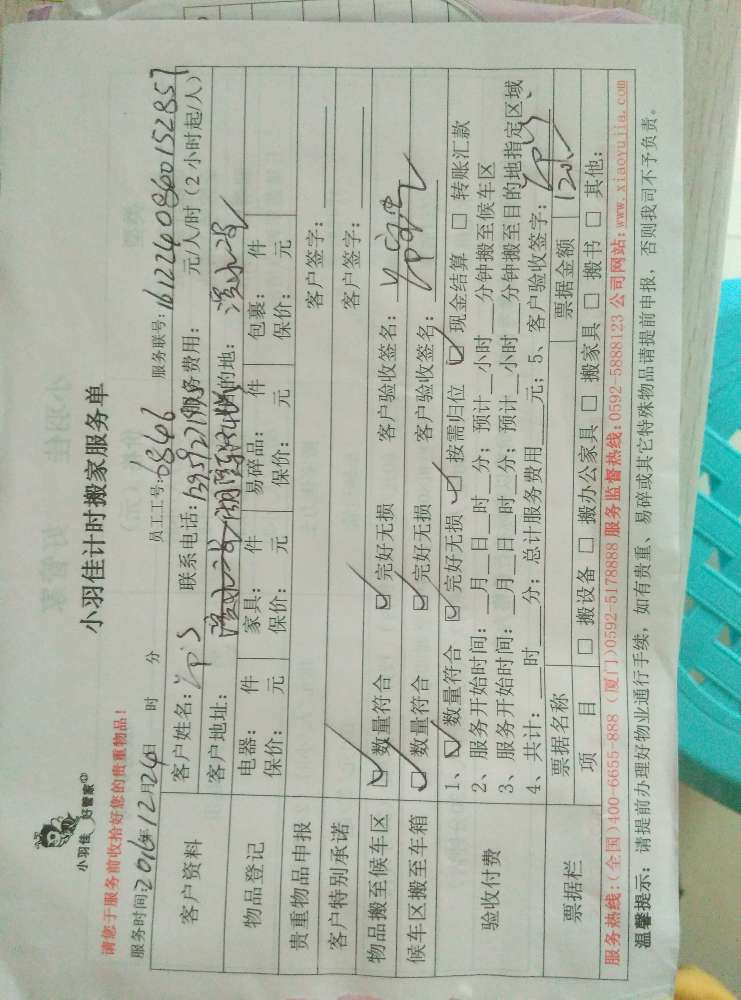 小羽佳 好管家
小羽佳计时搬家服务单
请您于服务前收拾好您的贵重物品！
服务时间：2016年12月24日 时 分 员工工号：0846 服务联号：161224080015 2857
客户资料 客户姓名： 联系电话： 服务费用： 元/人/时（2小时起/人）
客户地址： 的地：
物品登记 电器： 件 家具： 件 易碎品： 件 包裹： 件
保价： 元 保价： 元 保价： 元 保价： 元
贵重物品申报 客户签字：
客户特别承诺 客户签字：
物品搬至候车区 ☑ 数量符合 ☑ 完好无损 客户验收签名：
候车区搬至车箱 ☑ 数量符合 ☑ 完好无损 客户验收签名：
验收付费 1、☑ 数量符合 ☑ 完好无损 ☑ 按需归位 ☑ 现金结算 □ 转账汇款
2、服务开始时间：__月__日__时__分；预计__小时__分钟搬至候车区
3、服务开始时间：__月__日__时__分；预计__小时__分钟搬至目的地指定区域、
4、共计：__时__分；总计服务费用__元；5、客户验收签字：
票据栏 票据名称 票据金额 120.
项 目 □ 搬设备 □ 搬办公家具 □ 搬家具 □ 搬书 □ 其他：
服务热线：（全国）400-6655-888（厦门）0592-5178888 服务监督热线：0592-5888123 公司网站：www.xiaoyujia.com
温馨提示：请提前办理好物业通行手续，如有贵重、易碎或其它特殊物品请提前申报，否则我司不予负责。